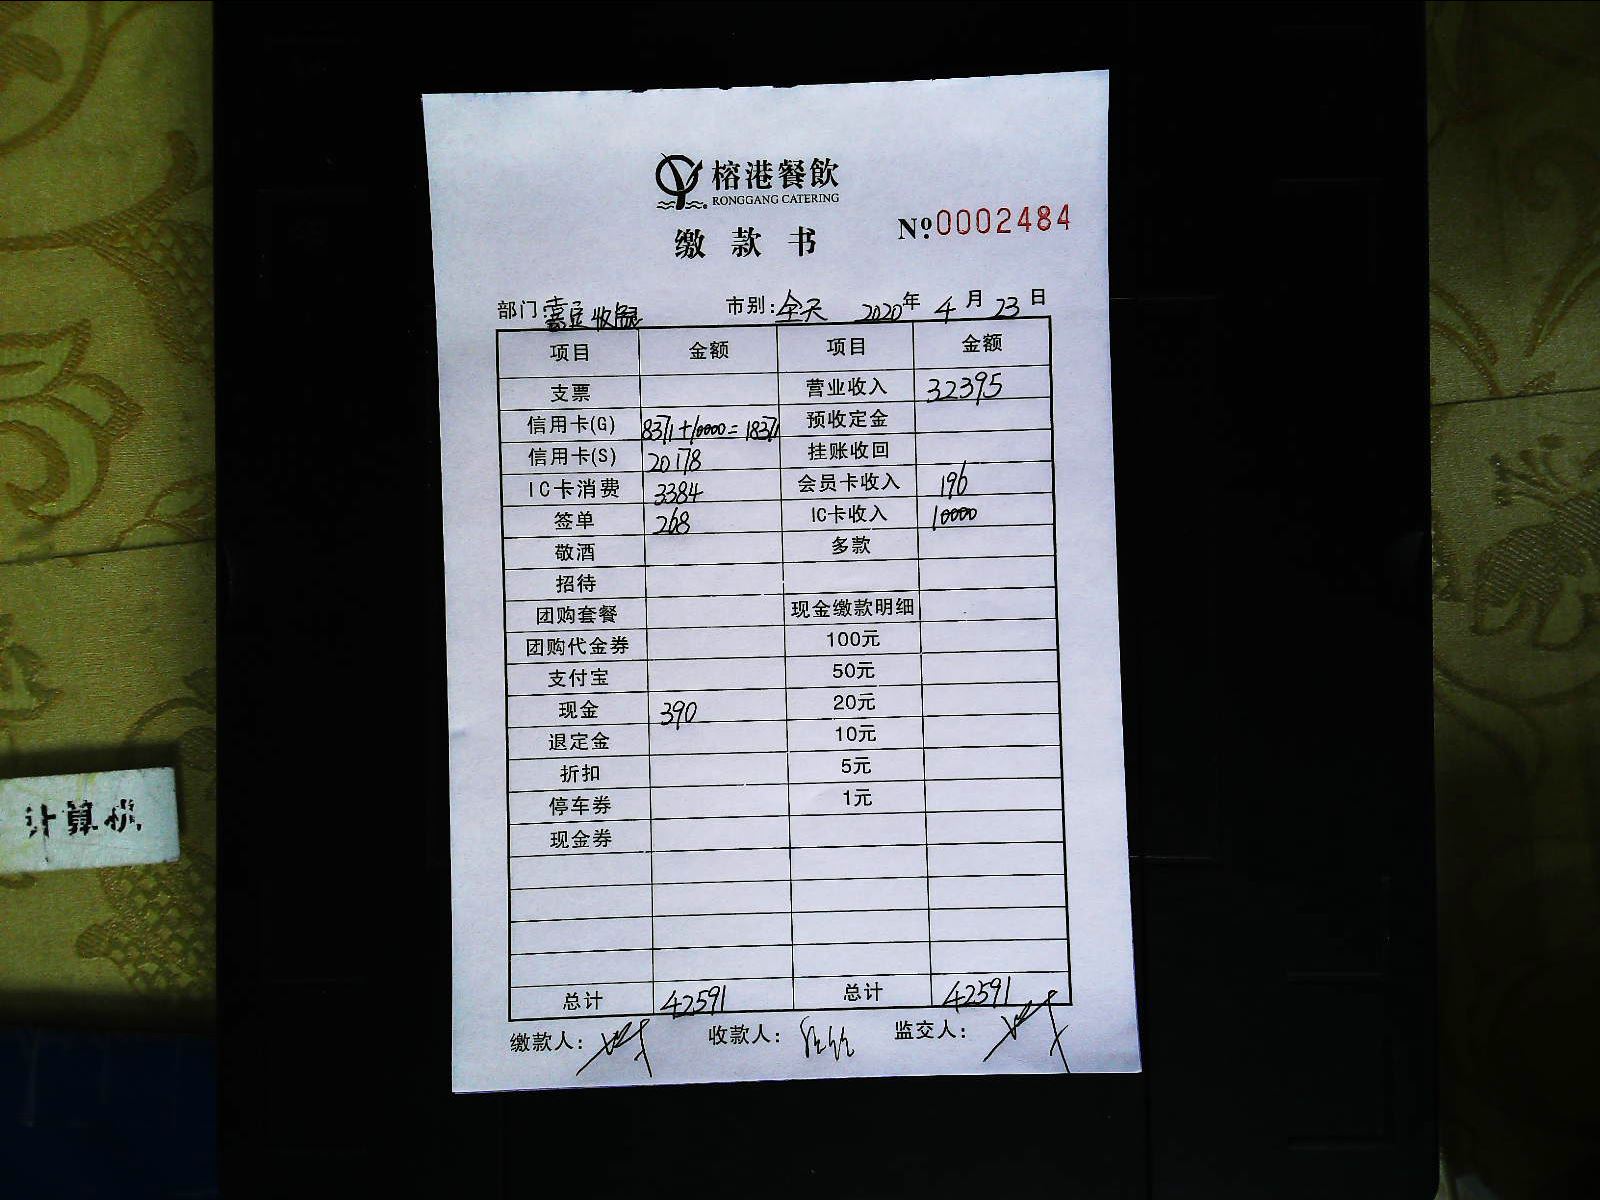 榕港餐飲
RONGGANG CATERING
缴款书
Nº0002484
部门:嘉定收银 市别:全天 2020年4月23日
项目 金额 项目 金额
支票 营业收入 32395
信用卡(G) 8371+10000=18371 预收定金
信用卡(S) 20178 挂账收回
IC卡消费 3384 会员卡收入 196
签单 268 IC卡收入 10000
敬酒 多款
招待
团购套餐 现金缴款明细
团购代金券 100元
支付宝 50元
现金 390 20元
退定金 10元
折扣 5元
停车券 1元
现金券
总计 42591 总计 42591
缴款人: 收款人: 监交人:
计算机